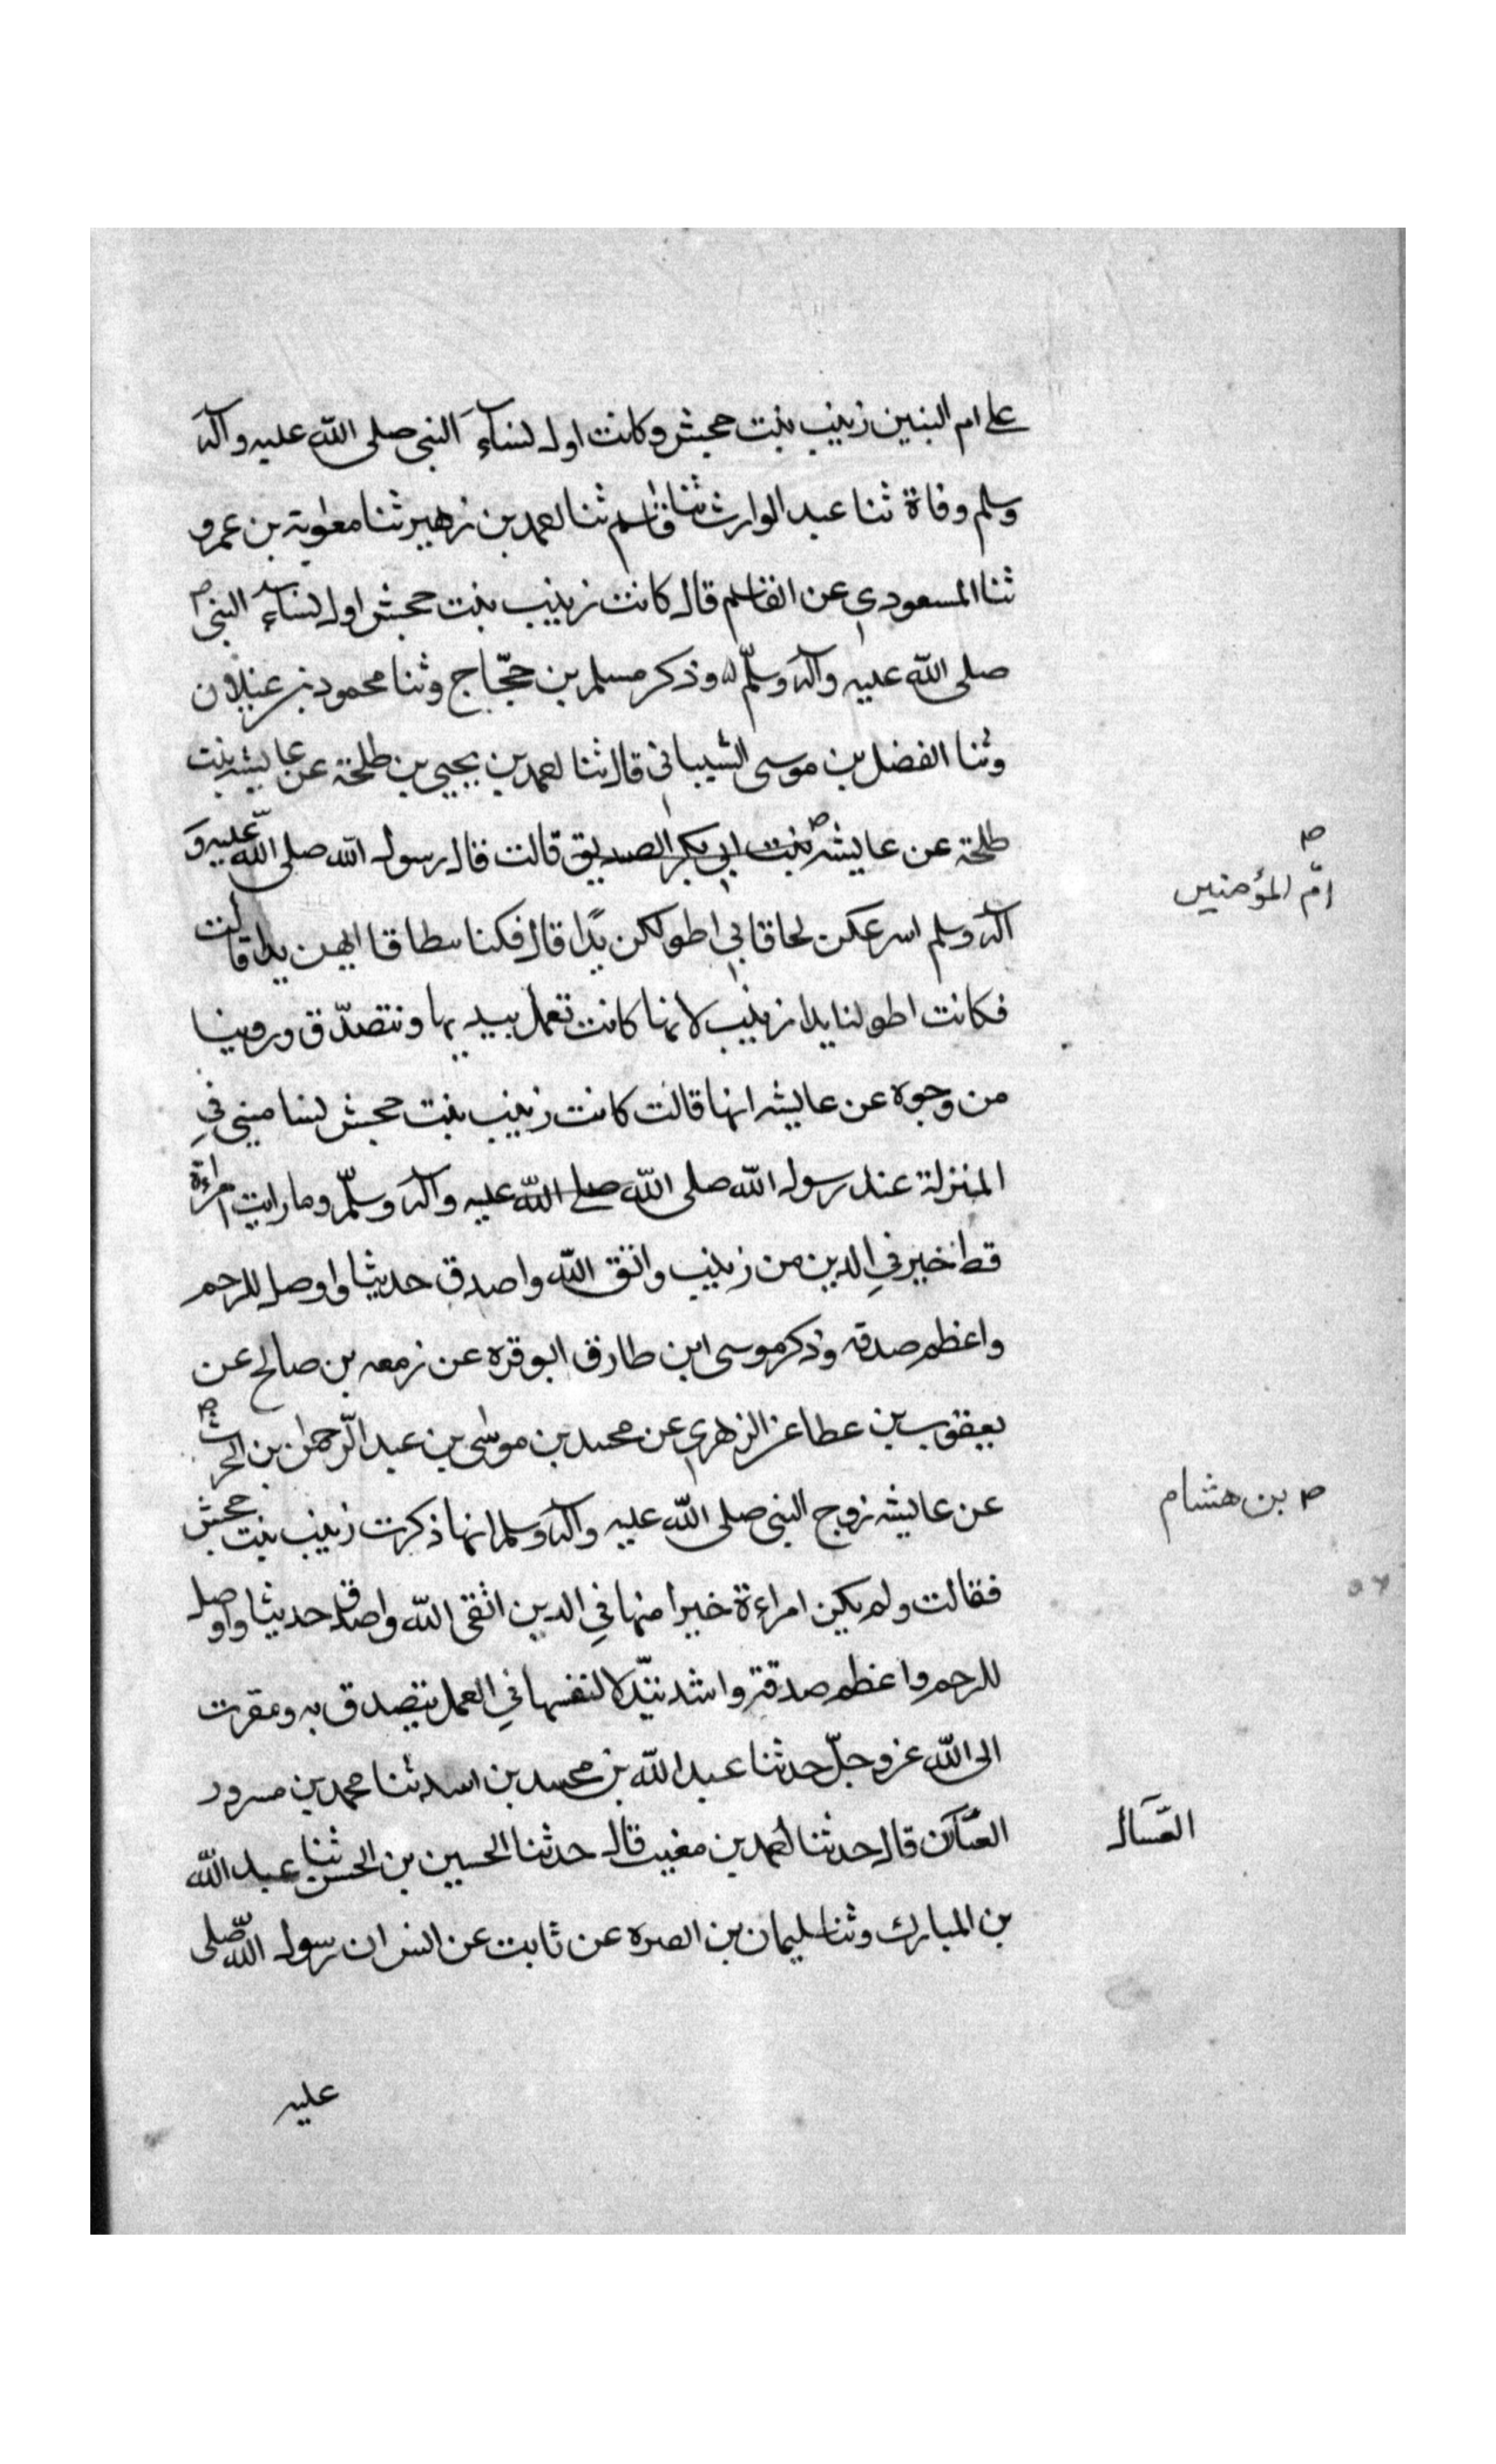 على ام البنين زينب بنت جحش وكانت اول نساء النبى صلى الله عليه وآله
وسلم وفاة ثنا عبد الوارث ثنا قاسم ثنا احمد بن زهير ثنا معوية بن عمرو
ثنا المسعودي عن القاسم قال كانت زينب بنت جحش اول نساء النبى
صلى الله عليه وآله وسلّم وذكر مسلم بن حجّاج وثنا محمود بن غيلان
وثنا الفضل بن موسى الشيبانى قال ثنا احمد بن يحيى بن طلحة عن عايشه بنت
طلحة عن عايشه بنت ابي بكر الصديق قالت قال رسول الله صلى الله عليه و
امّ المؤمنين
آله وسلم اسرعكن لحاقا بي اطولكن يدًا قال فكنا سطاقا ايهن يدا قالت
فكانت اطولنا يدا زينب لانها كانت تعمل بيديها وتتصدّق وروينا
من وجوه عن عايشه انها قالت كانت زينب بنت جحش تسامينى في
المنزلة عند رسول الله صلى الله صلى الله عليه وآله وسلّم وما رايت امراءة
قط خير في الدين من زينب واتق الله واصدق حديثا واوصل للرحم
واعظم صدقه وذكر موسى ابن طارق ابو قره عن زمعه بن صالح عن
يعقوب بن عطا عن الزهري عن محمد بن موسى بن عبد الرّحمن بن الحرث
عن عايشه زوج النبى صلى الله عليه وآله وسلم انها ذكرت زينب بنت جحش
بن هشام
فقالت ولم يكن امراءة خيرا منها في الدين اتقى الله واصدق حديثا واوصل
للرحم واعظم صدقة واشد تبذّلا لنفسها في العمل يتصدق به ومقرت
الى الله عز وجلّ حدثنا عبد الله بن محمد بن اسد ثنا محمد بن مسرور
قال حدثنا احمد بن مغيث قال حدثنا الحسين بن الحسن ثنا عبد الله
العسّال
بن المبارك وثنا سليمان بن الصره عن ثابت عن انس ان رسول الله صلى
عليه